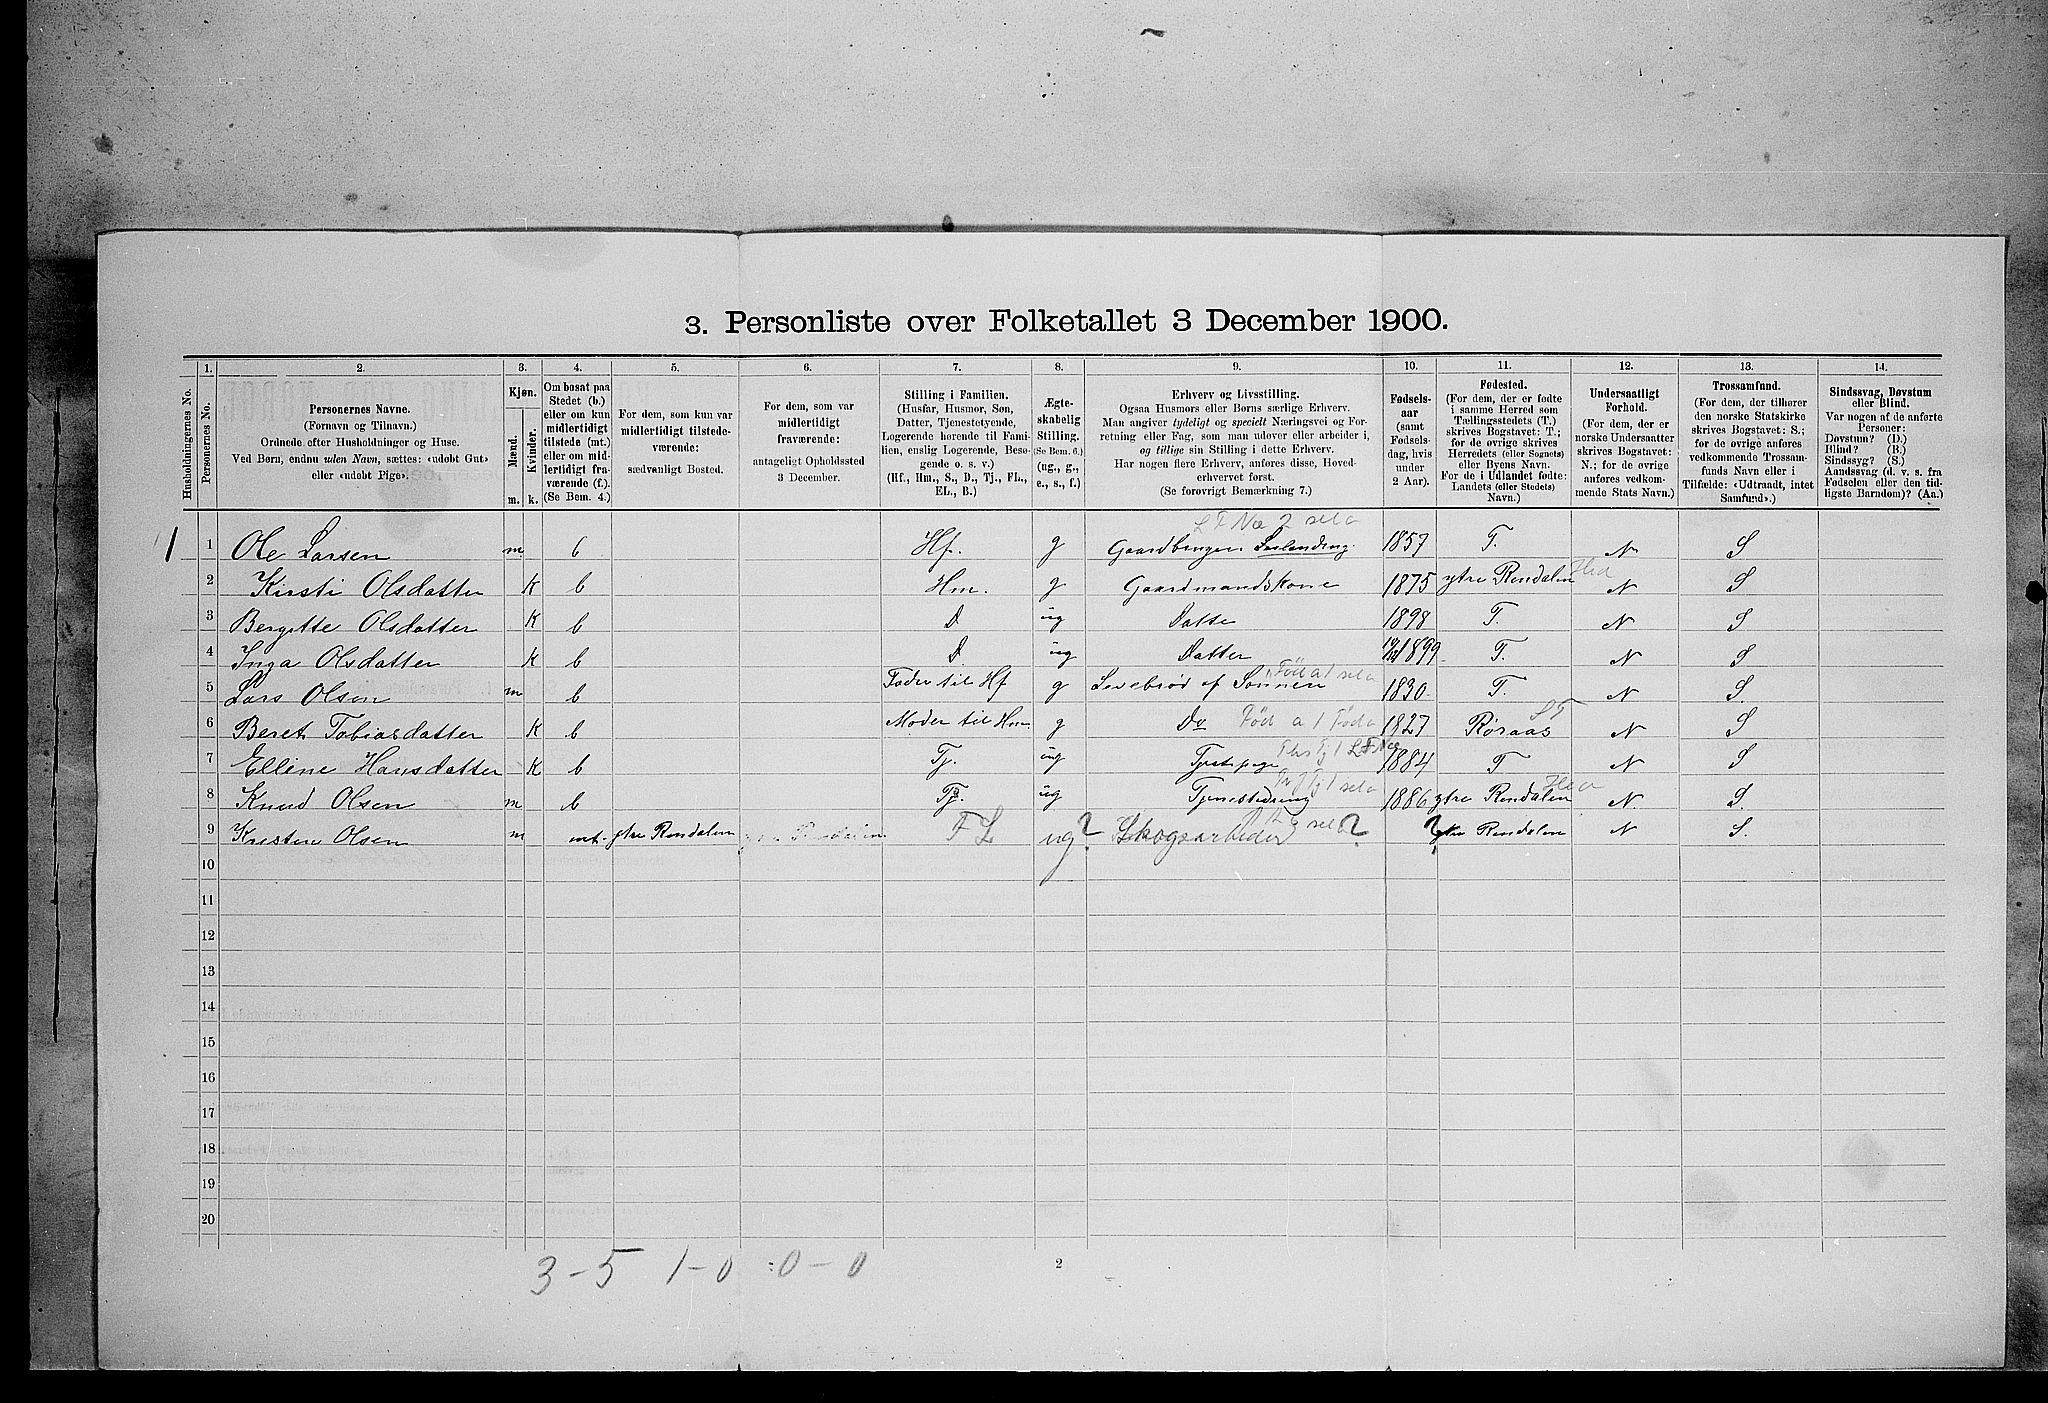 3. Personliste over Folketallet 3 December 1900.
Husholdningernes No.
1. Personernes No.
2. Personernes Navne.
(Fornavn og Tilnavn.)
Ordnede efter Husholdninger og Huse.
Ved Børn, endnu uden Navn, sættes: «udøbt Gut»
eller «udøbt Pige».
3. Kjøn.
Mænd. m.
Kvinder. k.
4. Om bosat paa
Stedet (b.)
eller om kun
midlertidigt
tilstede (mt.)
eller om mid-
lertidigt fra-
værende (f.).
(Se Bem. 4.)
5. For dem, som kun var
midlertidigt tilstede-
værende:
sædvanligt Bosted.
6. For dem, som var
midlertidigt
fraværende:
antageligt Opholdssted
3 December.
7. Stilling i Familien.
(Husfar, Husmor, Søn,
Datter, Tjenestetyende,
Logerende hørende til Fami-
lien, enslig Logerende, Besø-
gende o. s. v.)
(Hf., Hm., S., D., Tj., FL.,
EL., B.)
8. Ægte-
skabelig
Stilling.
(Se Bem. 6.)
(ug., g.,
e., s., f.)
9. Erhverv og Livsstilling.
Ogsaa Husmors eller Børns særlige Erhverv.
Man angiver tydeligt og specielt Næringsvei og For-
retning eller Fag, som man udøver eller arbeider i,
og tillige sin Stilling i dette Erhverv.
Har nogen flere Erhverv, anføres disse, Hoved-
erhvervet først.
(Se forøvrigt Bemærkning 7.)
10. Fødsels-
aar
(samt
Fødsels-
dag, hvis
under
2 Aar).
11. Fødested.
(For dem, der er fødte
i samme Herred som
Tællingsstedets (T.)
skrives Bogstavet: T.;
for de øvrige skrives
Herredets (eller Sognets)
eller Byens Navn.
For de i Udlandet fødte:
Landets (eller Stedets)
Navn.)
12. Undersaatligt
Forhold.
(For dem, der er
norske Undersaatter
skrives Bogstavet:
N.; for de øvrige
anføres vedkom-
mende Stats Navn.)
13. Trossamfund.
(For dem, der tilhører
den norske Statskirke
skrives Bogstavet: S.;
for de øvrige anføres
vedkommende Trossam-
funds Navn eller i
Tilfælde: «Udtraadt, intet
Samfund».)
14. Sindssvag, Døvstum
eller Blind.
Var nogen af de anførte
Personer:
Døvstum? (D.)
Blind? (B.)
Sindssyg? (S.)
Aandssvag (d. v. s. fra
Fødselen eller den tid-
ligste Barndom)? (Aa.)
1 1 Ole Larsen m b Hf. g Gaardbruger Selveier 1857 T. N S
2 Kirsti Olsdatter K b Hm. g Gaardmandskone 1875 ytre Rendalen Hed N S
3 Bergitte Olsdatter K b D ug Datter 1898 T. N S
4 Inga Olsdatter K b D. ug Datter 1899 T. N S
5 Lars Olsen m b Fader til Hf g Levebrød af Sønnen 1830 T. N S.
6 Beret Tobiasdatter K b Moder til Hm. g Do 1827 Røraas ST N S
7 Elline Hansdatter K b Tj. ug Tjenstepige 1884 T N S
8 Knud Olsen m b Tj. ug Tjenestedreng 1886 ytre Rendalen Hed N S.
9 Kristen Olsen m mt. ytre Rendalen ytre Rendalen FL ug? Skogsarbeider ? ? ytre Rendalen N S.
10
11
12
13
14
15
16
17
18
19
20
3-5 1-0 0-0
2